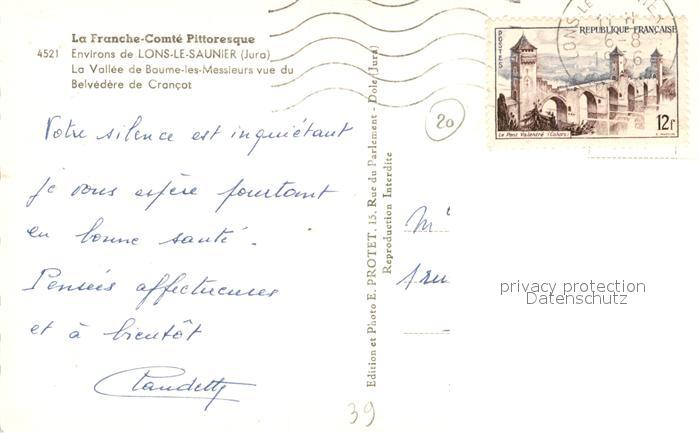 La Franche-Comté Pittoresque
4521 Environs de LONS-LE-SAUNIER (Jura)
La Vallée de Baume-les-Messieurs vue du
Belvédère de Crançot
Votre silence est inquiétant
je vous espère pourtant
en bonne santé.
Pensées affectueuses
et à bientôt
Claudette
39
Edition et Photo E. PROTET, 15, Rue du Parlement - Dole (Jura)
Reproduction Interdite
20
POSTES
REPUBLIQUE FRANÇAISE
Le Pont Valentré (Cahors)
12f
M
privacy protection
Datenschutz